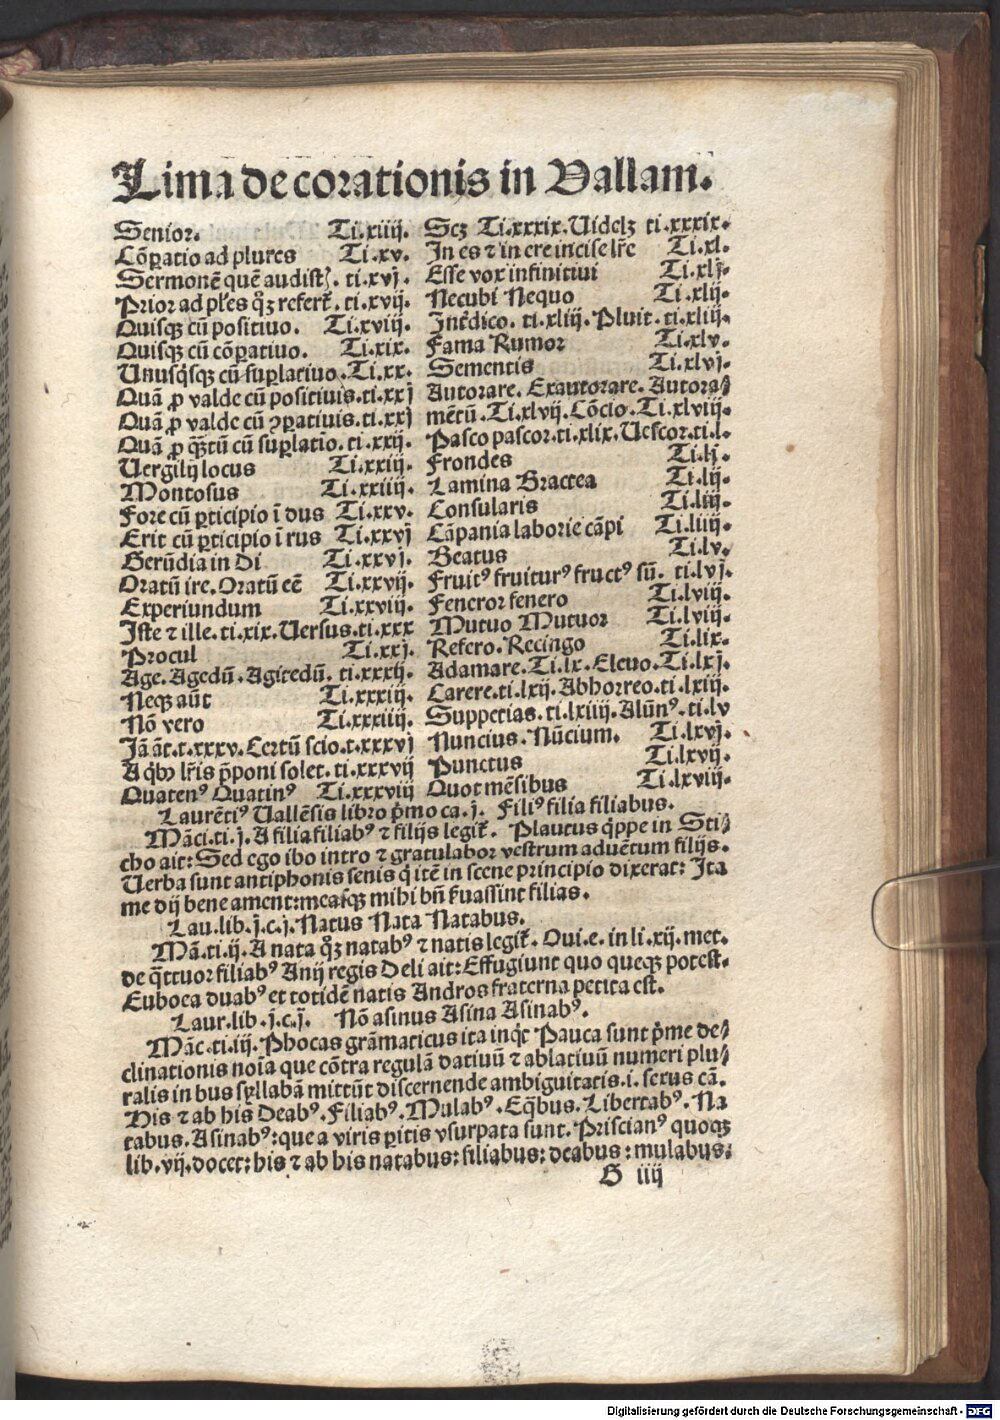 Lima decorationis in Vallam.
Senior. Ti.xiiij.
Cōꝑatio ad plures Ti.xv.
Sermonē quē audist᷒. ti.xvj.
Prior ad pl'es qꝫ refert᷑. ti.xvij.
Quisqꝫ cū positiuo. Ti.xviij.
Quisqꝫ cū cōꝑatiuo. Ti.xix.
Unusq̇sqꝫ cū suꝑlatiuo.Ti.xx.
Quā ꝓ valde cū positiuis.ti.xxj
Quā ꝓ valde cū ꝯꝑatiuis.ti.xxj
Quā ꝓ qꝫtū cū suꝑlatio.ti.xxij.
Vergilij locus Ti.xxiij.
Montosus Ti.xxiiij.
Fore cū ꝑticipio ī dus Ti.xxv.
Erit cū ꝑticipio ī rus Ti.xxvj
Gerūdia in Di Ti.xxvj.
Oratū ire.Oratū eē Ti.xxvij.
Experiundum Ti.xxviij.
Iste ⁊ ille.ti.xix.Versus.ti.xxx
Procul Ti.xxj.
Age.Agedū.Agitedū. ti.xxxij.
Neqꝫ aūt Ti.xxxiij.
Nō vero Ti.xxxiiij.
Iā āt.t.xxxv.Certū scio.t.xxxvj
A qͥbꝰ lr̄is p̄poni solet.ti.xxxvij
Quatenꝰ Quatinꝰ Ti.xxxviij
Scꝫ Ti.xxxix.Uidelꝫ ti.xxxix.
In es ⁊ in ere incise lr̄e Ti.xl.
Esse vox infinitiui Ti.xlj.
Necubi Nequo Ti.xlij.
Intēdico. ti.xliij.Pluit.ti.xliij.
Fama Rumor Ti.xlv.
Sementis Ti.xlvj.
Autorare. Exautorare. Autora⸗
mētū.Ti.xlvij.Cōcio.Ti.xlviij.
Pasco pascor.ti.xlix.Vescor.ti.l.
Frondes Ti.lj.
Lamina Bractea Ti.lij.
Consularis Ti.liij.
Cāpania laborie cāpi Ti.liiij.
Beatus Ti.lv.
Fruitꝰ fruiturꝰ fructꝰ sū. ti.lvj.
Feneror fenero Ti.lviij.
Mutuo Mutuor Ti.lviij.
Refero.Recingo Ti.lix.
Adamare.Ti.lx.Eleuo.Ti.lxj.
Carere.ti.lxij.Abhorreo.ti.lxiij.
Suppetias.ti.lxiiij.Alūnꝰ.ti.lv
Nuncius.Nūcium. Ti.lxvj.
Punctus Ti.lxvij.
Quot mēsibus Ti.lxviij.
Laurētiꝰ Vallēsis libro p̄mo ca.j. Filiꝰ filia filiabus.
Māci.ti.j.A filia filiabꝰ ⁊ filijs legit᷑. Plautus q̇ppe in Sti⸗
cho ait:Sed ego ibo intro ⁊ gratulabor vestrum aduētum filijs.
Verba sunt antiphonis senis q̇ itē in scene principio dixerat: Ita
me dij bene ament:measqꝫ mihi bn̄ s̄uassint filias.
Lau.lib.j.c.j.Natus Nata Natabus.
Mā.ti.ij.A nata qꝫ natabꝰ ⁊ natis legit᷑. Oui.e. in li.xij.met.
de q̄ttuor filiabꝰ Anij regis Deli ait:Effugiunt quo queqꝫ potest.
Euboea duabꝰ et totidē natis Andros fraterna petita est.
Laur.lib.j.c.j. Nō asinus Asina Asinabꝰ.
Māc.ti.iij.Phocas grāmaticus ita inqͥt Pauca sunt p̄me de⸗
clinationis noīa que cōtra regulā datiuū ⁊ ablatiuū numeri plu⸗
ralis in bus syllabā mittūt discernende ambiguitatis.i. sexus cā.
His ⁊ ab his Deabꝰ.Filiabꝰ.Mulabꝰ.Eq̄bus.Libertabꝰ.Na
tabus.Asinabꝰ:que a viris ꝑitis vsurpata sunt.Priscianꝰ quoqꝫ
lib.vij.docet:his ⁊ ab his natabus:filiabus:deabus:mulabus:
G iiij
Digitalisierung gefördert durch die Deutsche Forschungsgemeinschaft - DFG